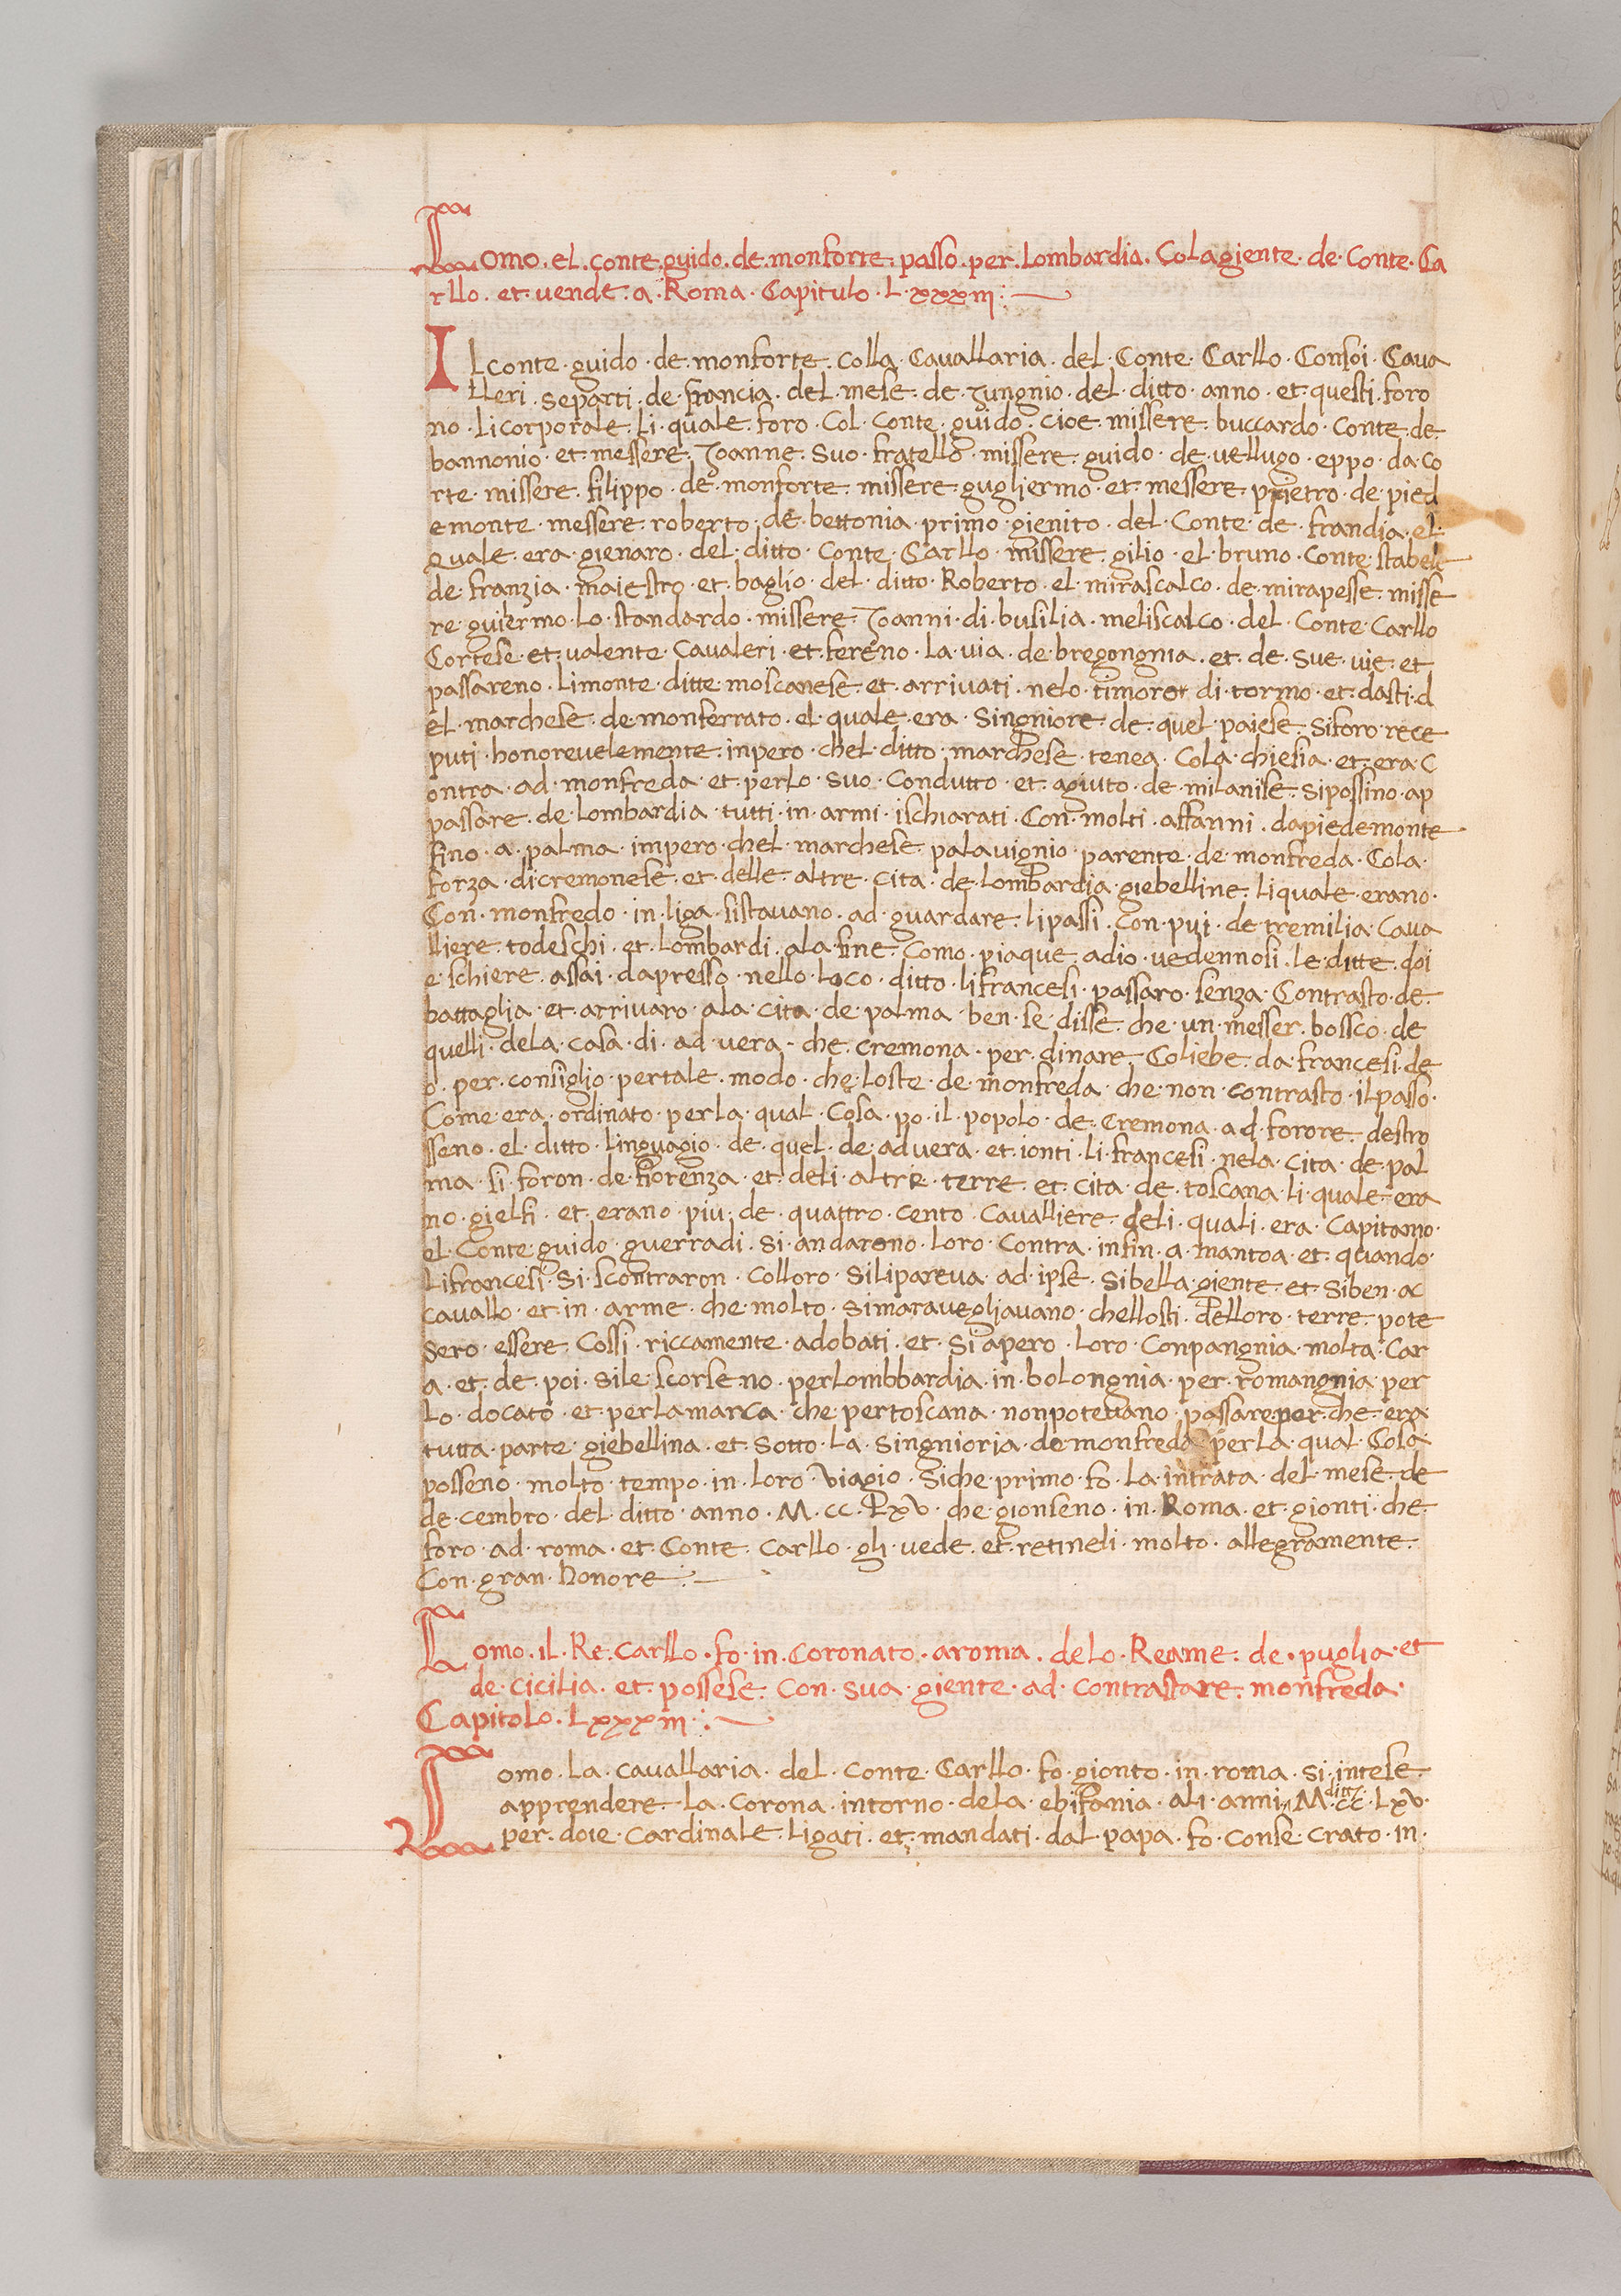 Como. el. conte. guido. de. monforte. passo. per. Lombardia. Cola giente. de. Conte. Ca
rllo. et. vende. a. Roma. Capitulo. L.xxxiii:
IL conte. guido. de. monforte. colla. Cavallaria. del. Conte. Carllo. Consoi. Cava
lleri. separti. de. francia. del. mese. de. Jungnio. del. ditto. anno. et. questi. foro
no. li corporale. li. quale. foro. Col. Conte. guido. cioe. missere. buccardo. Conte. de.
bannonio. et. messere. Joanne. suo. fratello. missere. guido. de. vellugo. eppo. da. co
rte. missere. filippo. de. monforte. missere. gugliermo. et. messere. prietro. de. pied
emonte. messere. roberto. de. bettonia. primo. gienito. del. Conte. de. frandia. el.
quale. era. gienaro. del. ditto. Conte. Carllo. missere. gilio. el. bruno. Conte. stabele
de. franzia. maiestro. et. baglio. del. ditto. Roberto. el. mirascalco. de. mirapesse. misse
re. guiermo. Lo. standardo. missere. Joanni. di. busilia. meliscalco. del. Conte. Carllo
Cortese. et. valente. Cavaleri. et. fereno. la. via. de. bregongnia. et. de. sue. vie. et
passareno. Li monte. ditte. moscanese. et. arrivati. nelo. timoror. di. tormo. et. dasti. d
el. marchese. de. monferrato. el. quale. era. Singniore. de. quel. paiese. si foro. rece
puti. honorevelemente. inpero. chel. ditto. marchese. tenea. Cola. chiesia. et. era. C
ontra. ad. monfreda. et. perlo. suo. Condutto. et. agiuto. de. milanise. si possino. ap
passare. de. Lombardia. tutti. in. armi. ischiarati. Con. molti. affanni. da piedemonte.
fino. a. palma. impero. chel. marchese. palavignio. parente. de. monfreda. Cola.
forza. di cremonese. et. delle. altre. cita. de. Lombardia. giebelline. li quale. erano.
Con. monfredo. in. liga. si stavano. ad. guardare. li passi. con. pui. de. tremilia. Cava
lliere. todeschi. et. Lombardi. ala. fine. Como. piaque. adio. vedennosi. le. ditte. doi
e. schiere. assai. dapresso. nello. loco. ditto. li francesi. passaro. senza. Contrasto. de.
battaglia. et. arrivaro. ala. cita. de. palma. ben. se. disse. che. un. messer. bossco. de
quelli. dela. casa. di. ad. vera. che. cremona. per. dinare. Coliebe. da. francesi. de
o. per. consiglio. per tale. modo. che. loste. de. monfreda. che. non. contrasto. il passo.
Come. era. ordinato. per la. qual. cosa. po. il. popolo. de. Cremona. ad. forore. destro
sseno. el. ditto. linguagio. de. quel. de. advera. et. ionti. li. francesi. nela. cita. de. pal
ma. si. foron. de. fiorenza. et. deli. altre. terre. et. cita. de. toscana. li. quale. era
no. gielfi. et. erano. piu. de. quattro. cento. Cavalliere. deli. quali. era. Capitano.
el. Conte. guido. guerradi. si. andarono. loro. contra. infin. a. mantoa. et. quando.
Li francesi. si. scontraron. colloro. si li pareva. ad. ipse. si bella. giente. et. si ben. ac
cavallo. et. in. arme. che. molto. si maravegliavano. chellosti. delloro. terre. pote
sero. essere. Cossi. riccamente. adobati. et. si apero. loro. Conpangnia. molta. Car
a. et. de. poi. si le. scorseno. per lombbardia. in. bolongnia. per. romangnia. per
lo. docato. et. per la marca. che. per toscana. non potevano. passare. per. che. era
tutta. parte. giebellina. et. sotto. la. singnioria. de monfreda. per la. qual. Cosa
posseno. molto. tempo. in. loro. viagio. si che. primo. fo. la. intrata. del. mese. de
de. cembro. del. ditto. anno. M. cc. Lxv. che. gionseno. in. Roma. et. gionti. che.
foro. ad. roma. et. Conte. Carllo. gli. vede. et. retineli. molto. allegramente.
Con. gran. honore.:
Como. il. Re. Carllo. fo. in. coronato. a roma. delo. Reame. de. puglia. et
de. cicilia. et. possese. con. sua. giente. ad. contrastare. monfreda.
Capitolo. Lxxxiii.:
Como. la. cavallaria. del. conte. Carllo. fo. gionto. in. roma. si. intese.
apprendere. la. corona. intorno. dela. ebifania. ali. anni. ditti M. cc. Lxv.
per. doie. cardinale. Ligati. et. mandati. dal. papa. fo. conse. crato. in.